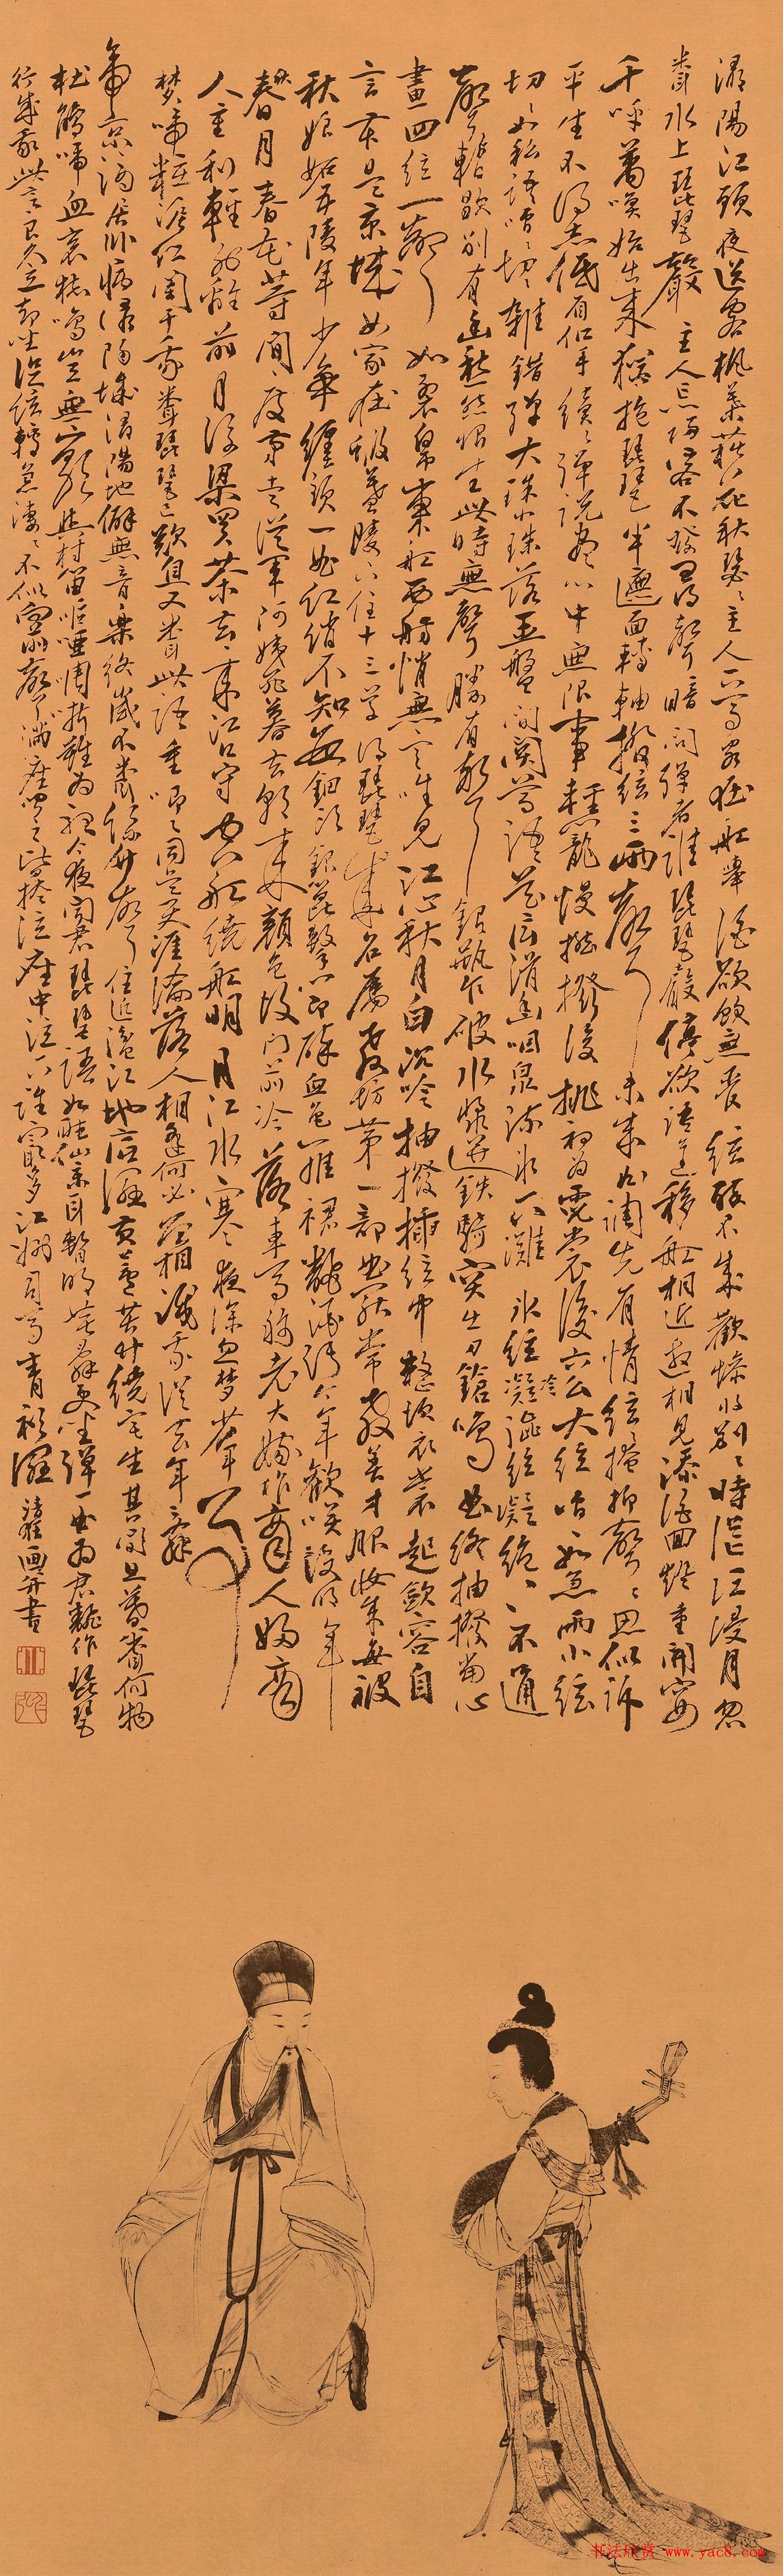 潯陽江頭夜送客楓葉荻花秋瑟〻主人下馬客在船舉酒欲飲無管絃醉不成歡慘將別〻時茫〻江浸月忽
聞水上琵琶聲主人忘歸客不發尋聲暗問彈者誰琵琶聲停欲語遲移船相近邀相見添酒回燈重開宴
千呼萬喚始出來猶抱琵琶半遮面轉軸撥絃三兩聲未成曲調先有情絃〻掩抑聲〻思似訴
平生不得志低眉信手續〻彈說盡心中無限事輕攏慢撚撥復挑初為霓裳後六幺大絃嘈〻如急雨小絃
切〻如私語嘈〻切〻雜錯彈大珠小珠落玉盤間關鶯語花底滑幽咽泉流氷下灘氷絃冷凝澀絃凝絕〻不通
聲暫歇別有幽愁闇恨生此時無聲勝有聲銀瓶乍破水漿迸鐵騎突出刀鎗鳴曲終抽撥當心
畫四絃一聲如裂帛東船西舫悄無言唯見江心秋月白沉吟抽撥插絃中整頓衣裳起斂容自
言本是京城女家在蝦蟇陵下住十三學得琵琶成名屬教坊第一部曲罷常教善才服妝成每被
秋娘妬五陵年少爭纏頭一曲紅綃不知數鈿頭銀篦擊節碎血色羅裙翻酒污今年歡笑復明年
秋月春花等閒度弟走從軍阿姨死暮去朝來顏色故門前冷落車馬稀老大嫁作商人婦商
人重利輕別離前月浮梁買茶去〻來江口守空船繞船明月江水寒夜深忽夢少年事
夢啼粧淚紅闌干我聞琵琶已歎息又聞此語重唧〻同是天涯淪落人相逢何必曾相識我從去年辭
帝京謫居臥病潯陽城潯陽地僻無音樂終歲不聞絲竹聲住近湓江地底濕黃蘆苦竹繞宅生其間旦暮聞何物
杜鵑啼血哀猿鳴豈無山歌與村笛嘔啞嘲哳難為聽今夜聞君琵琶語如聽仙樂耳暫明莫辭更坐彈一曲為君翻作琵琶
行感我此言良久立却坐促絃轉急淒〻不似向前聲滿座聞之皆掩泣座中泣下誰最多江州司馬青衫濕 清狂畫并書
书法欣赏 www.yac8.com